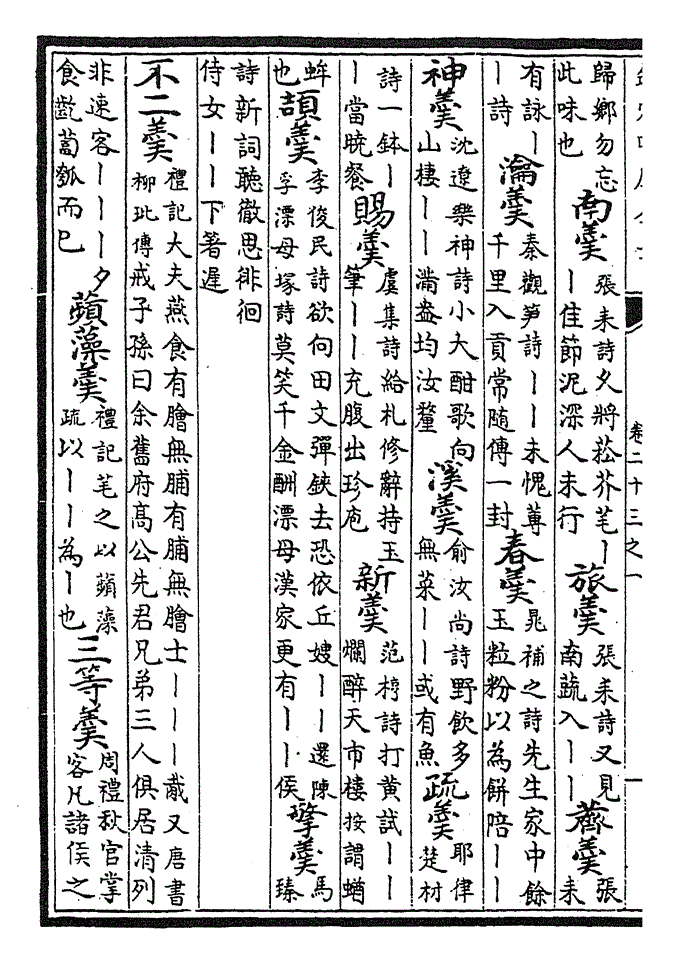 卷二十三之一
歸鄉勿忘
此味也
南羹
張耒詩久將菘芥芼丨
丨佳節泥深人未行
旅羹
張耒詩又見
南蔬入丨丨
薺羹
張
耒
有詠丨
丨詩
瀹羹
秦觀笋詩丨丨未愧蓴
千里入貢常隨傳一封
春羹
晁補之詩先生家中餘
玉粒粉以為餅陪丨丨
神羹
沈遼樂神詩小大酣歌向
山棲丨丨滿盎均汝釐
溪羹
俞汝尚詩野飲多
無菜丨丨或有魚
疏羹
耶律
楚材
詩一鉢丨
丨當晚餐
賜羹
虞集詩給札修辭持玉
筆丨丨充腹出珍庖
新羹
范梈詩打黃試丨丨
爛醉天市樓按謂蝤
蛑
也
頡羹
李俊民詩欲向田文彈鋏去恐依丘嫂丨丨還陳
孚漂母塚詩莫笑千金酬漂母漢家更有丨丨侯
擎羹
馬
臻
詩新詞聽徹思徘徊
侍女丨丨下箸遲
不二羹
禮記大夫燕食有膾無脯有脯無膾士丨丨丨胾又唐書
柳玭傳戒子孫曰余舊府高公先君兄弟三人俱居清列
非速客丨丨丨夕
食齕蔔瓠而已
蘋藻羹
禮記芼之以蘋藻
疏以丨丨為丨也
三等羹
周禮秋官掌
客凡諸侯之